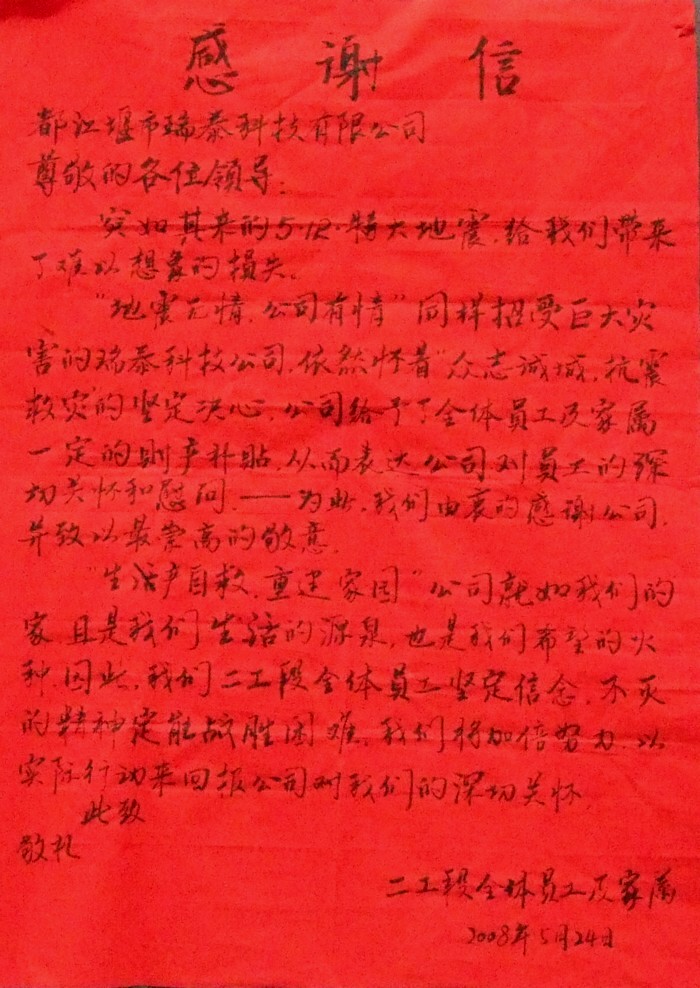 感谢信
都江堰市瑞泰科技有限公司
尊敬的各位领导:
突如其来的5·12·特大地震,给我们带来
了难以想象的损失。
“地震无情,公司有情”同样招受巨大灾
害的瑞泰科技公司,依然怀着“众志诚城,抗震
救灾”的坚定决心,公司给予了全体员工及家属
一定的财产补贴,从而表达公司对员工的深
切关怀和慰问,——为此,我们由衷的感谢公司,
并致以最崇高的敬意。
“生活产自救,重建家园”公司就如我们的
家且是我们生活的源泉,也是我们希望的火
种,因此,我们二工段全体员工坚定信念,不灭
的精神定能战胜困难,我们将加倍努力,以
实际行动来回报公司对我们的深切关怀。
此致
敬礼
二工段全体员工及家属
2008年5月24日